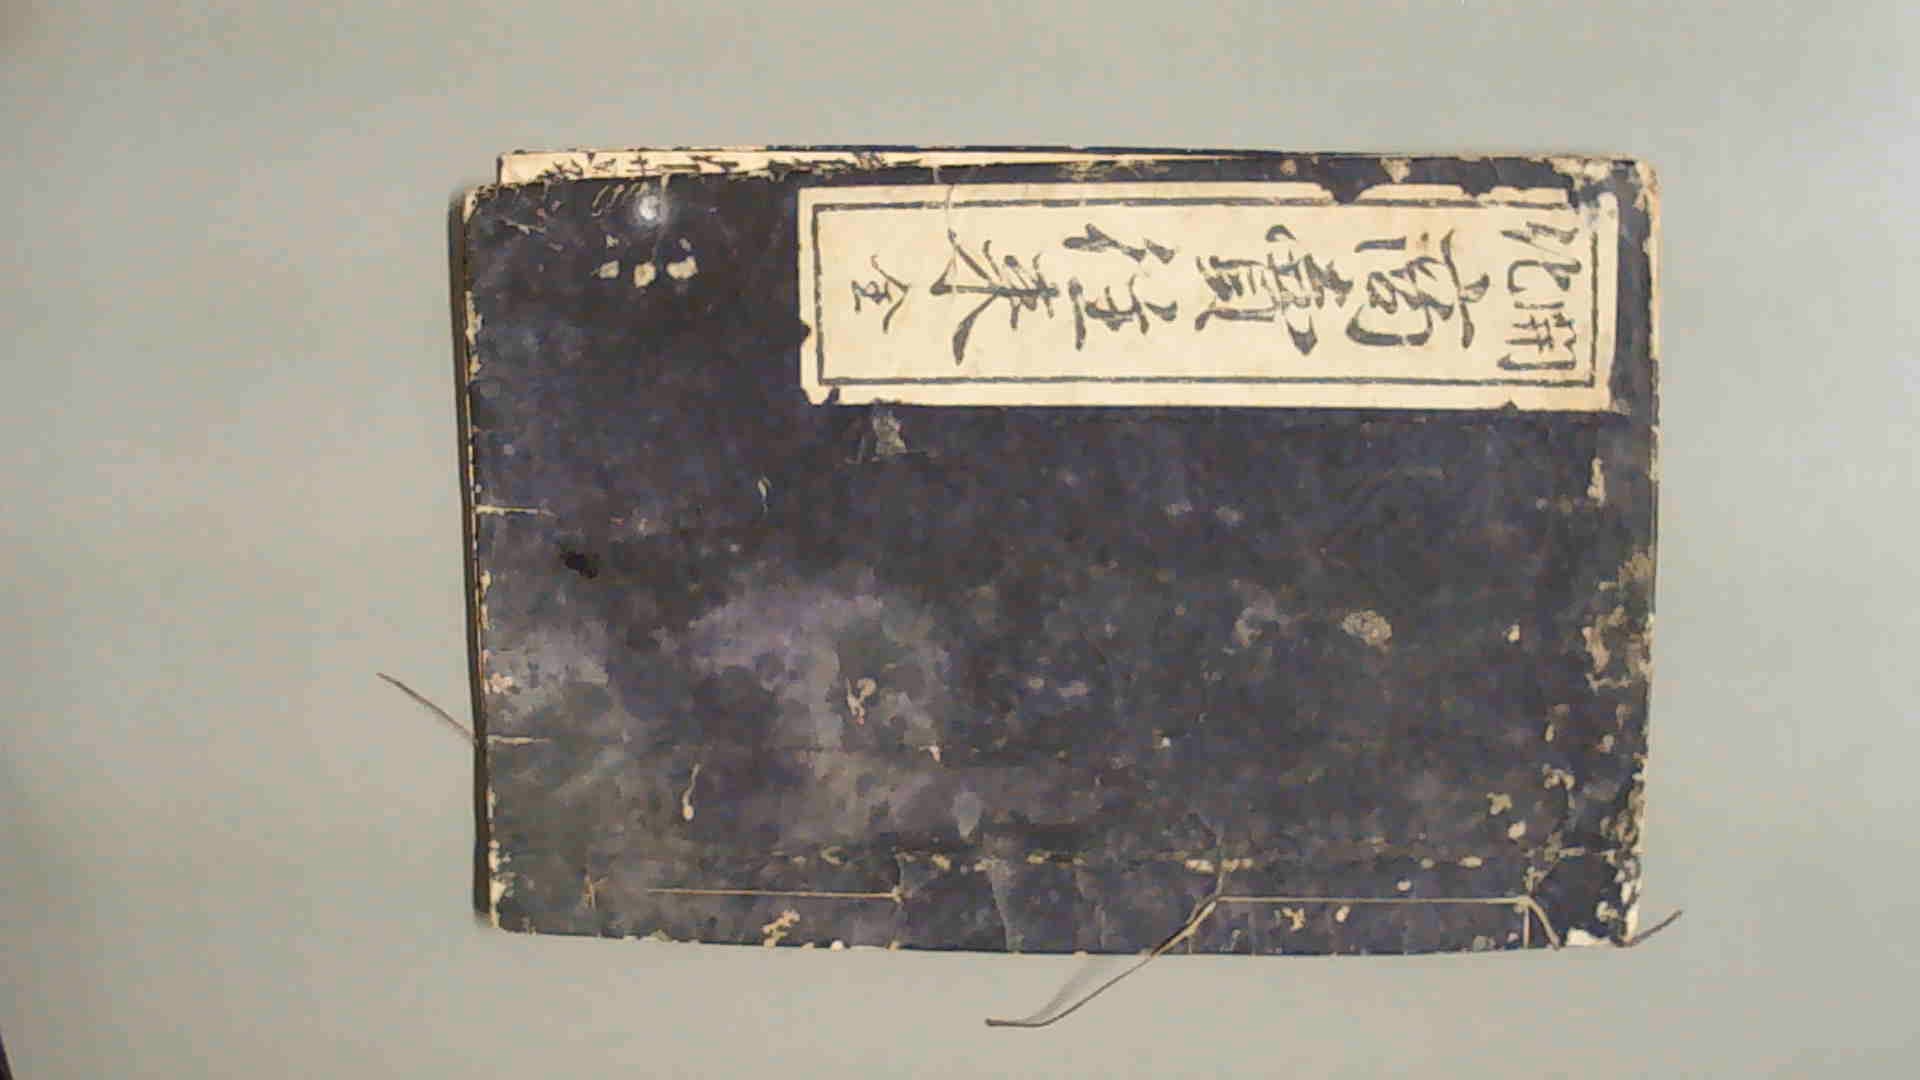 開化
商賣往来 全